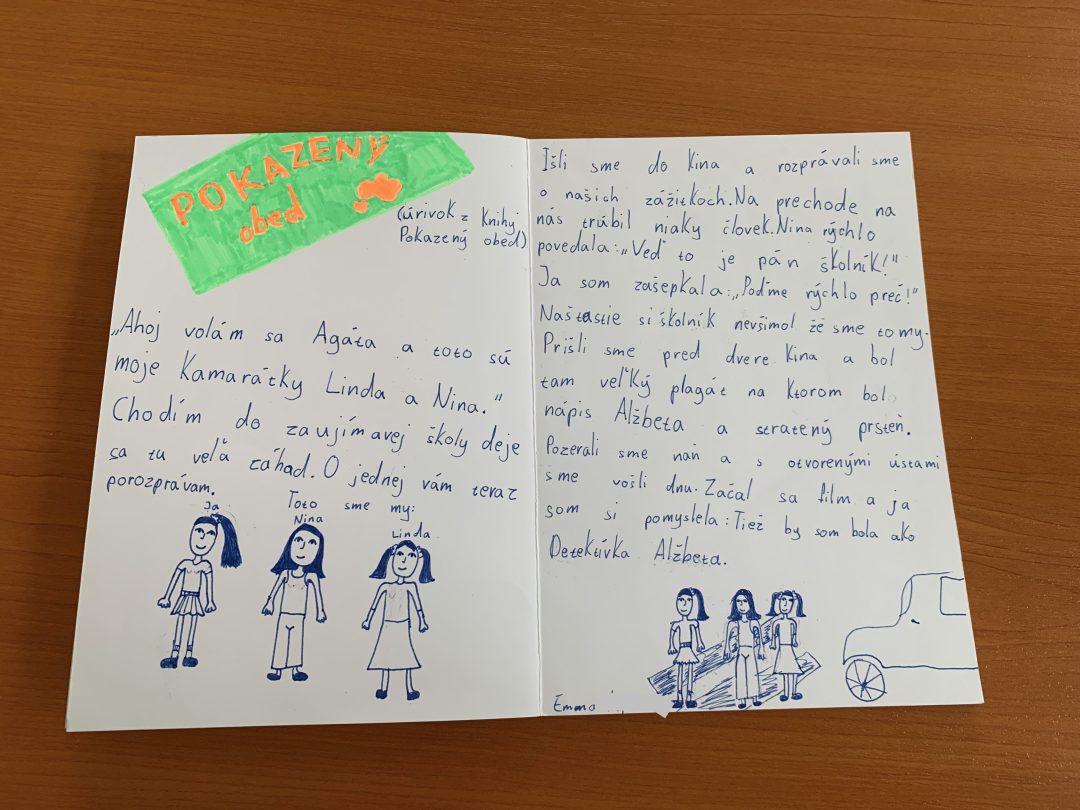 POKAZENÝ
obed
(úrivok z knihy
Pokazený obed)
„Ahoj volám sa Agáta a toto sú
moje Kamarátky Linda a Nina."
Chodím do zaujímavej školy deje
sa tu veľa záhad. O jednej vám teraz
porozprávam.
Toto sme my:
Ja
Nina
Linda
Išli sme do Kina a rozprávali sme
o našich zážitkoch. Na prechode na
nás trúbil niaky človek. Nina rýchlo
povedala: „Veď to je pán školník!"
Ja som zašepkala: „Poďme rýchlo preč!"
Naštastie si školník nevšimol že sme to my.
Prišli sme pred dvere Kina a bol
tam veľký plagát na Ktorom bol
nápis Alžbeta a stratený prsteň.
Pozerali sme naň a s otvorenými ústami
sme vošli dnu. Začal sa film a ja
som si pomyslela: Tiež by som bola ako
Detektívka Alžbeta.
Emma